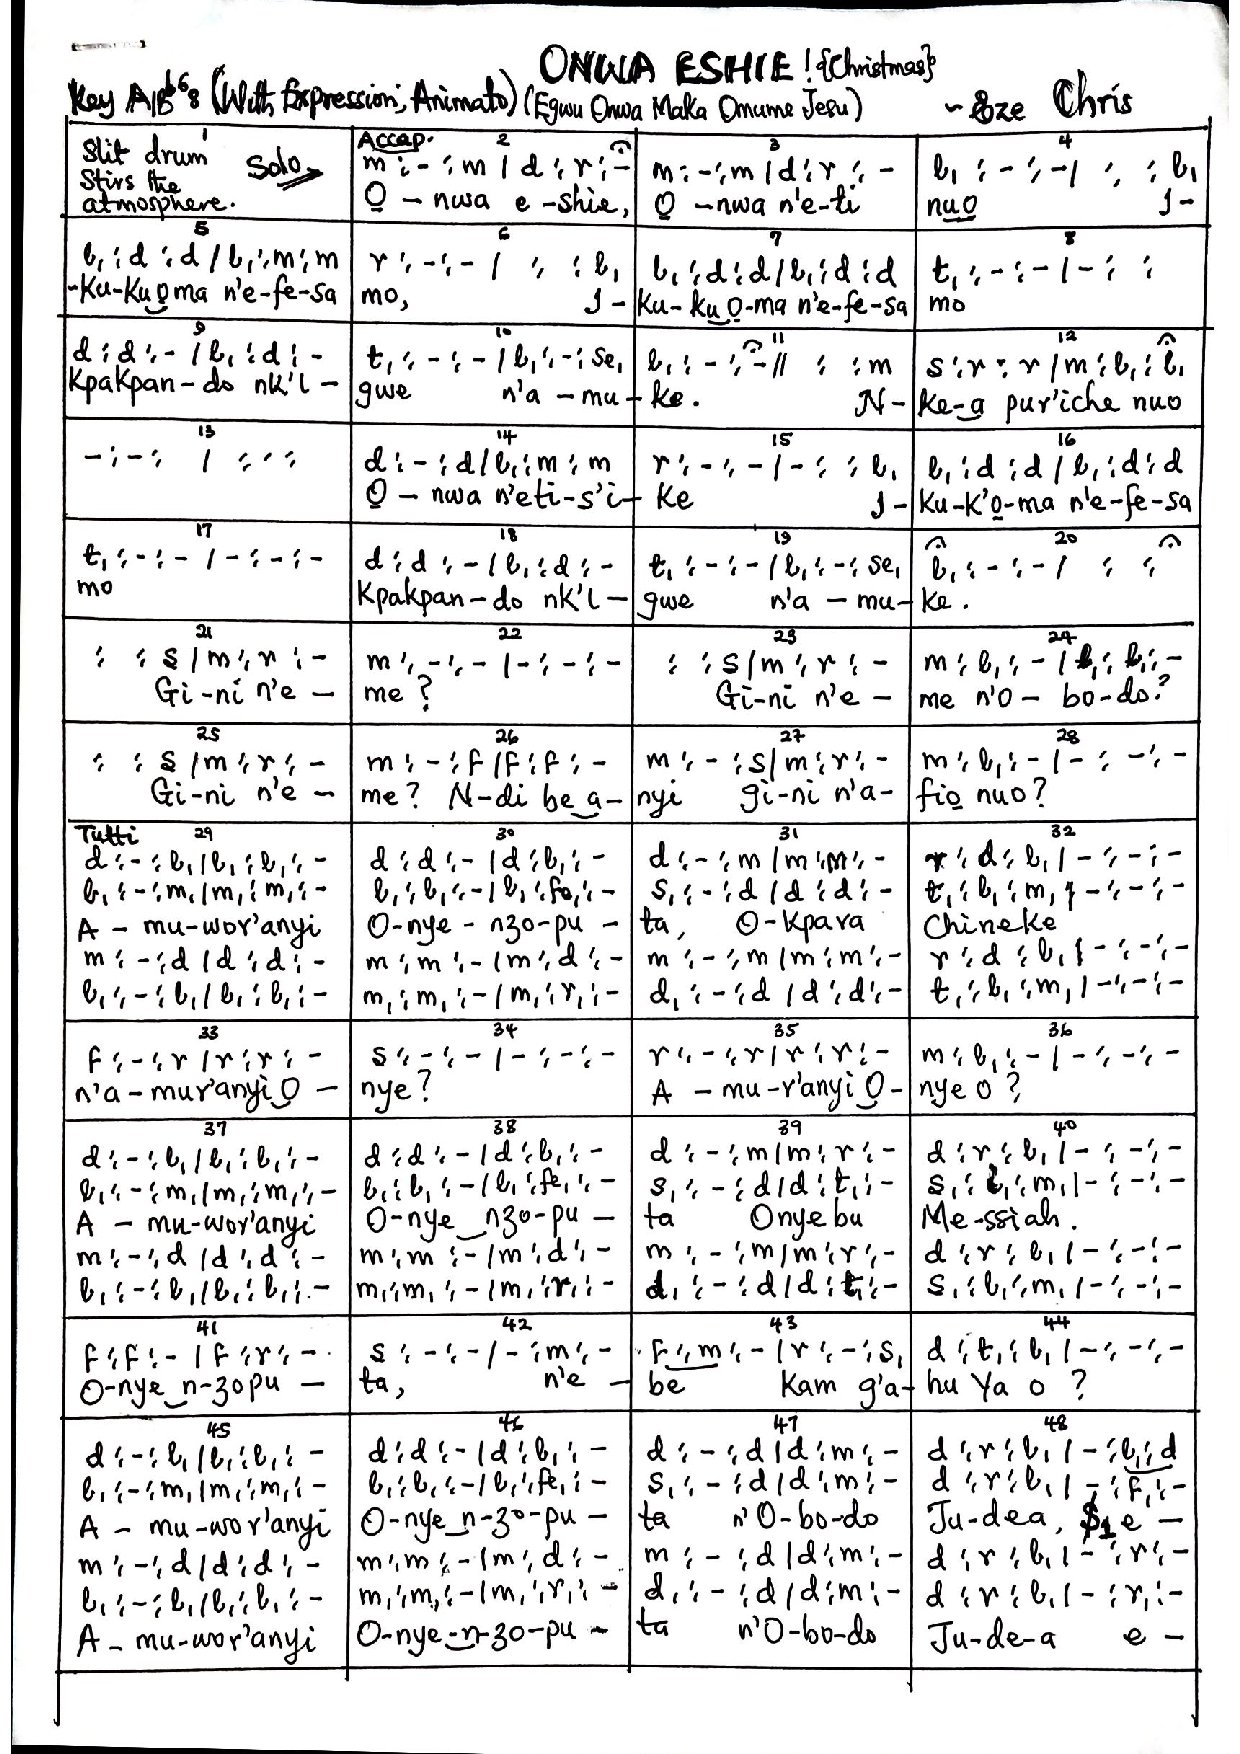 ONWA ESHIE! {Christmas}
Key A/Bb 6/8 (With Expression, Animato) (Egwu Onwa Maka Omume Jesu) ~ Eze Chris
1
Slit drum
Stirs the
atmosphere.
Solo
Accap. 2
m :- :m / d :r :-
Ọ - nwa e -shie,
3
m :- :m / d :r :-
Ọ -nwa n'e-ti
4
l₁ :- :- / : : l₁
nụọ J-
5
l₁ :d :d / l₁ :m :m
-Ku-Kuọma n'e-fe-sa
6
r :- :- / : : l₁
mo, J-
7
l₁ :d :d / l₁ :d :d
Ku-kuỌ-ma n'e-fe-sa
8
t₁ :- :- / - : :
mo
9
d :d :- / l₁ :d :-
KpaKpan-do nk'l-
10
t₁ :- :- / l₁ :- :se₁
gwe n'a-mu-
11
l₁ :- :- // : : m
ke. N-
12
s :r :r / m :l₁ :l₁
ke-a pur'iche nuo
13
- :- :- / : : :
14
d :- :d / l₁ :m :m
Ọ - nwa n'eti-s'i-
15
r :- :- / - : : l₁
Ke J-
16
l₁ :d :d / l₁ :d :d
Ku-K'ọ-ma n'e-fe-sa
17
t₁ :- :- / - :- :-
mo
18
d :d :- / l₁ :d :-
Kpakpan-do nk'l-
19
t₁ :- :- / l₁ :- :se₁
gwe n'a-mu-
20
l₁ :- :- / : :
ke.
21
: : s / m :r :-
Gi-ni n'e -
22
m :- :- / - :- :-
me?
23
: : s / m :r :-
Gi-ni n'e -
24
m :l₁ :- / l₁ :l₁ :-
me n'O- bo-do?
25
: : s / m :r :-
Gi-ni n'e -
26
m :- :f / f :f :-
me? N-di be a-
27
m :- :s / m :r :-
nyi gi-ni n'a-
28
m :l₁ :- / - : - :-
fiọ nuo?
Tutti 29
d :- :l₁ / l₁ :l₁ :-
l₁ :- :m₁ / m₁ :m₁ :-
A - mu-wor'anyi
m :- :d / d :d :-
l₁ :- :l₁ / l₁ :l₁ :-
30
d :d :- / d :l₁ :-
l₁ :l₁ :- / l₁ :fe₁ :-
O-nye - nzo-pu -
m :m :- / m :d :-
m₁ :m₁ :- / m₁ :r₁ :-
31
d :- :m / m :m :-
s₁ :- :d / d :d :-
ta, O-Kpara
m :- :m / m :m :-
d₁ :- :d / d :d :-
32
r :d :l₁ / - :- :-
t₁ :l₁ :m₁ / - :- :-
Chineke
r :d :l₁ / - :- :-
t₁ :l₁ :m₁ / - :- :-
33
f :- :r / r :r :-
n'a-mur'anyi O -
34
s :- :- / - :- :-
nye?
35
r :- :r / r :r :-
A - mu-r'anyi O-
36
m :l₁ :- / - :- :-
nye o?
37
d :- :l₁ / l₁ :l₁ :-
l₁ :- :m₁ / m₁ :m₁ :-
A - mu-wor'anyi
m :- :d / d :d :-
l₁ :- :l₁ / l₁ :l₁ :-
38
d :d :- / d :l₁ :-
l₁ :l₁ :- / l₁ :fe₁ :-
O-nye nzo-pu -
m :m :- / m :d :-
m₁ :m₁ :- / m₁ :r₁ :-
39
d :- :m / m :r :-
s₁ :- :d / d :t₁ :-
ta Onyebu
m :- :m / m :r :-
d₁ :- :d / d :t₁ :-
40
d :r :l₁ / - :- :-
s₁ :l₁ :m₁ / - :- :-
Me-ssiah.
d :r :l₁ / - :- :-
s₁ :l₁ :m₁ / - :- :-
41
f :f :- / f :r :-
O-nye n-zopu -
42
s :- :- / - :m :-
ta, n'e -
43
f :m :- / r :- :s₁
be Kam g'a-
44
d :t₁ :l₁ / - :- :-
hu Ya o?
45
d :- :l₁ / l₁ :l₁ :-
l₁ :- :m₁ / m₁ :m₁ :-
A - mu-wor'anyi
m :- :d / d :d :-
l₁ :- :l₁ / l₁ :l₁ :-
A - mu-wor'anyi
46
d :d :- / d :l₁ :-
l₁ :l₁ :- / l₁ :fe₁ :-
O-nye n-zo-pu -
m :m :- / m :d :-
m₁ :m₁ :- / m₁ :r₁ :-
O-nye-n-zo-pu -
47
d :- :d / d :m :-
s₁ :- :d / d :m :-
ta n'O-bo-do
m :- :d / d :m :-
d₁ :- :d / d :m :-
ta n'O-bo-do
48
d :r :l₁ / - :l₁ :d
d :r :l₁ / - :f₁ :-
Ju-dea, e -
d :r :l₁ / - :r :-
d :r :l₁ / - :r₁ :-
Ju-de-a e -